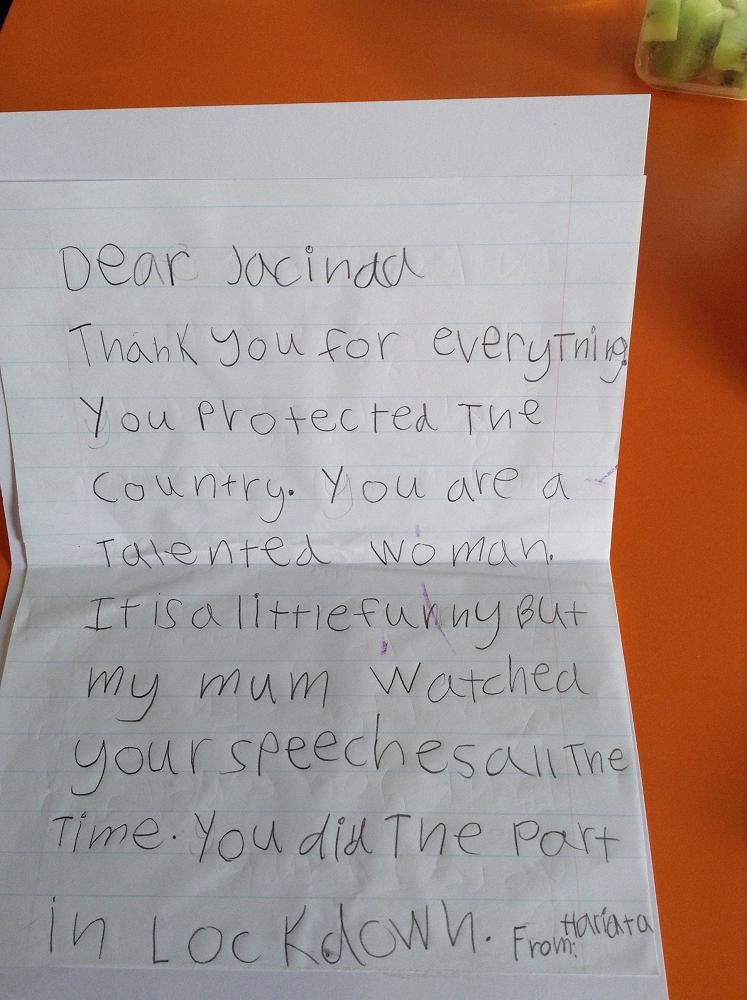 Dear Jacinda
Thank you for everything.
You protected The
Country. You are a
Talented woman.
It is a little funny But
my mum watched
your speeches all The
Time. You did The part
in Lockdown. From: Hariata